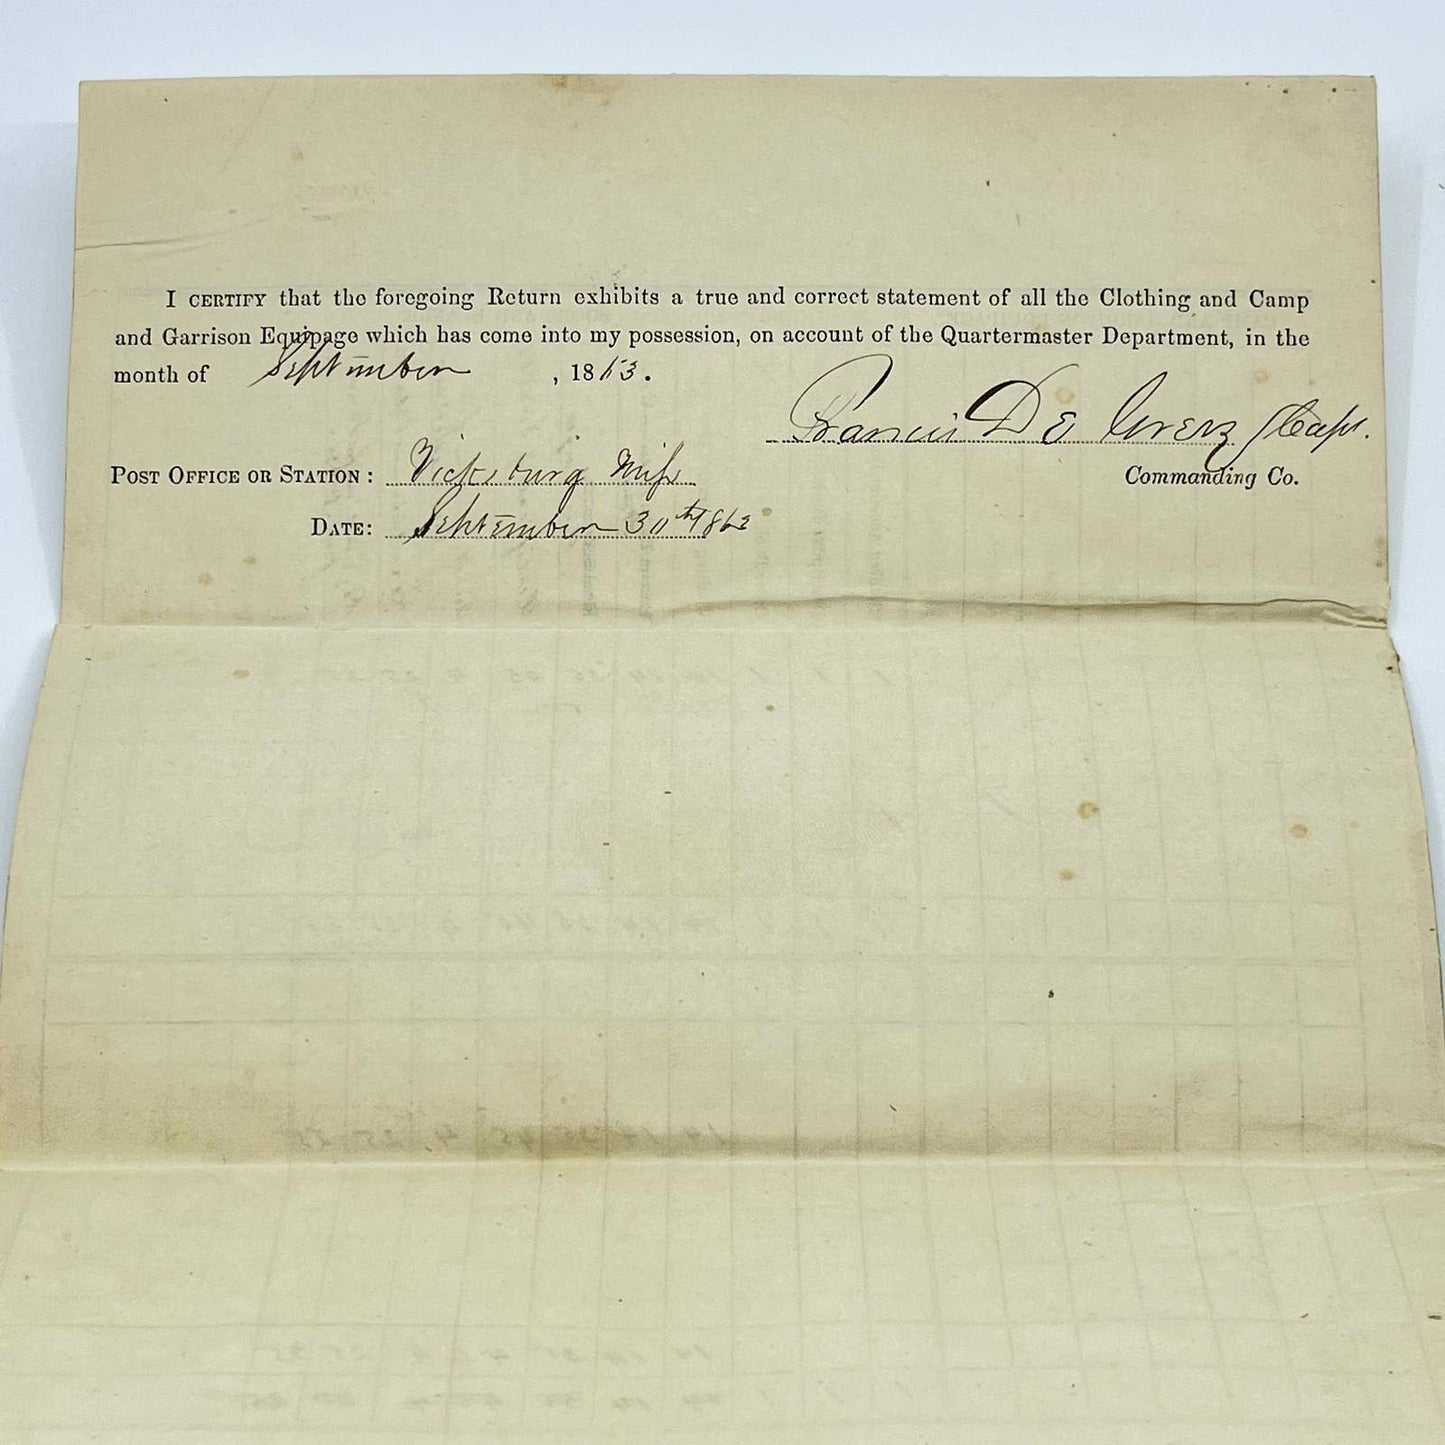 I CERTIFY that the foregoing Return exhibits a true and correct statement of all the Clothing and Camp
and Garrison Equipage which has come into my possession, on account of the Quartermaster Department, in the
month of September , 1863.
Francis De Capt.
POST OFFICE OR STATION : Vicksburg Miss
Commanding Co.
DATE: September 30th 1863